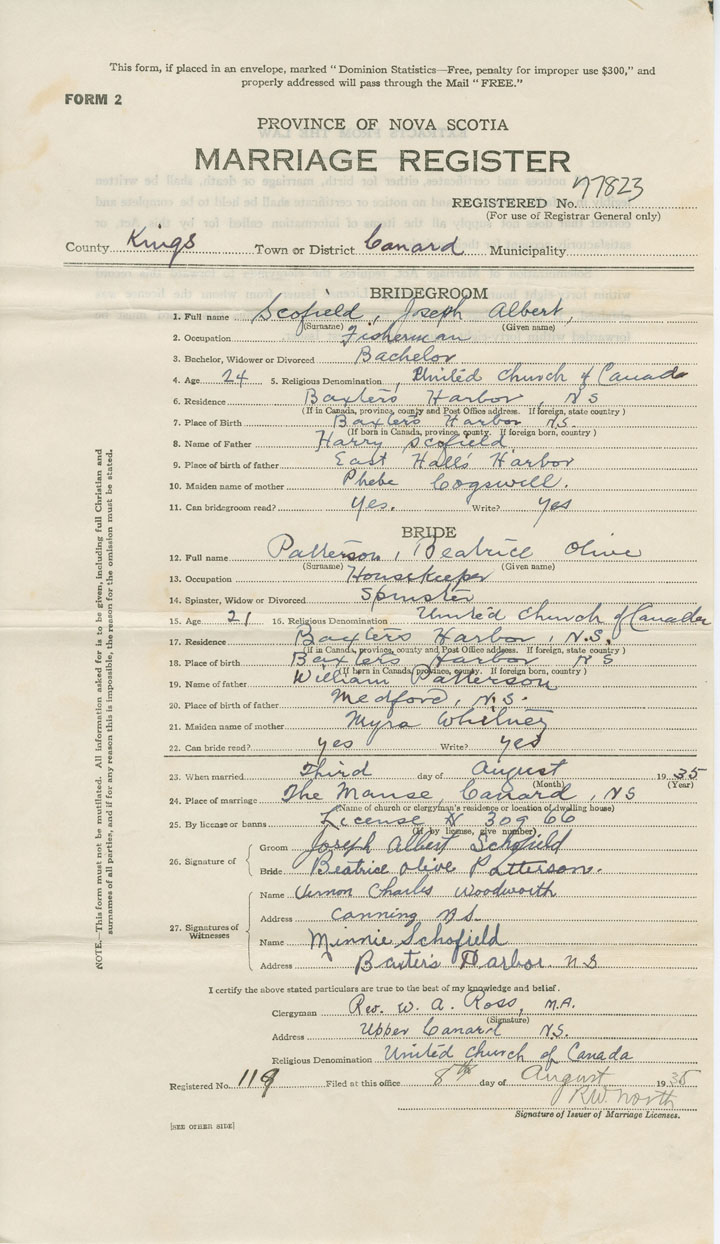 This form, if placed in an envelope, marked " Dominion Statistics—Free, penalty for improper use $300," and
properly addressed will pass through the Mail " FREE."
FORM 2
PROVINCE OF NOVA SCOTIA
MARRIAGE REGISTER
REGISTERED No. 77823
(For use of Registrar General only)
County Kings Town or District Canard Municipality
BRIDEGROOM
1. Full name Scofield, Joseph Albert,
(Surname) (Given name)
2. Occupation Fisherman
3. Bachelor, Widower or Divorced Bachelor
4. Age 24 5. Religious Denomination United Church of Canada
6. Residence Baxter's Harbor, NS
(If in Canada, province, county and Post Office address. If foreign, state country )
7. Place of Birth Baxter's Harbor N.S.
(If born in Canada, province, county. If foreign born, country )
8. Name of Father Harry Scofield
9. Place of birth of father East Hall's Harbor
10. Maiden name of mother Phebe Cogswill.
11. Can bridegroom read? Yes. Write? Yes
BRIDE
12. Full name Patterson, Beatrice Olive
(Surname) (Given name)
13. Occupation Housekeeper
14. Spinster, Widow or Divorced Spinster
15. Age 21 16. Religious Denomination United Church of Canada
17. Residence Baxter's Harbor, N.S.
(If in Canada, province, county and Post Office address. If foreign, state country )
18. Place of birth Baxter's Harbor N S
(If born in Canada, province, county. If foreign born, country )
19. Name of father William Patterson
20. Place of birth of father Medford, N.S.
21. Maiden name of mother Myra Whitney
22. Can bride read? yes Write? yes
23. When married Third day of August 1935
(Month) (Year)
24. Place of marriage The Manse, Canard, NS
(Name of church or clergyman's residence or location of dwelling house)
25. By license or banns License N 309 66
(If by license, give number)
26. Signature of
Groom Joseph Albert Schofield
Bride Beatrice Olive Patterson.
27. Signatures of Witnesses
Name Vernon Charles Woodworth
Address Canning N.S.
Name Minnie Schofield
Address Baxter's Harbor N S
I certify the above stated particulars are true to the best of my knowledge and belief.
Clergyman Rev. W. A. Ross, M.A.
(Signature)
Address Upper Canard N.S.
Religious Denomination United Church of Canada
Registered No. 119 Filed at this office 8th day of August 1935
R.W. North
Signature of Issuer of Marriage Licenses.
[SEE OTHER SIDE]
NOTE.—This form must not be mutilated. All information asked for is to be given, including full Christian and
surnames of all parties, and if for any reason this is impossible, the reason for the omission must be stated.